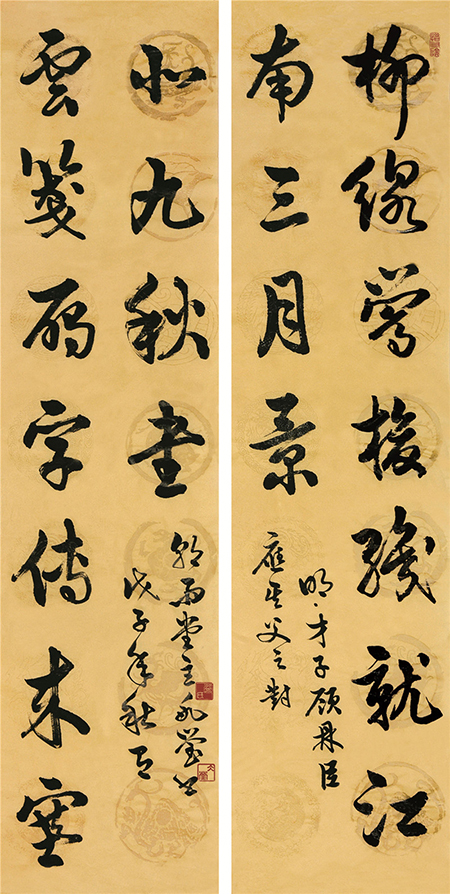 柳線鶯梭織就江
南三月景
明·才子顧鼎臣
應其父之對
雲箋雁字傳來塞
北九秋書
戊子年秋
雨堂主
瑩書